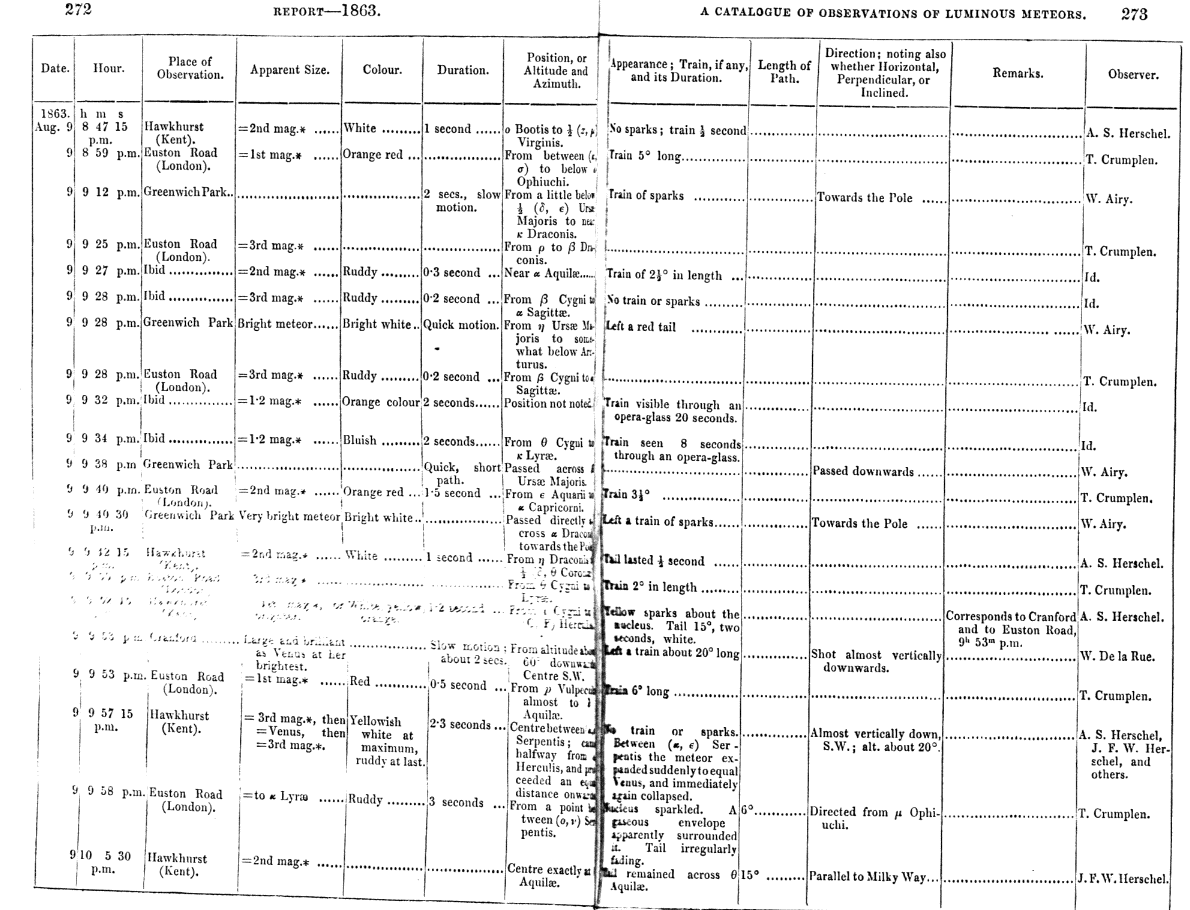 272 REPORT—1863.
A CATALOGUE OF OBSERVATIONS OF LUMINOUS METEORS. 273
Date. Hour. Place of Observation. Apparent Size. Colour. Duration. Position, or Altitude and Azimuth. Appearance; Train, if any, and its Duration. Length of Path. Direction; noting also whether Horizontal, Perpendicular, or Inclined. Remarks. Observer.
1863. h m s
Aug. 9 8 47 15 p.m. Hawkhurst (Kent). =2nd mag.* ...... White ......... 1 second ...... o Bootis to ½ Virginis. No sparks; train ½ second A. S. Herschel.
9 8 59 p.m. Euston Road (London). =1st mag.* ...... Orange red ... From between σ) to below Ophiuchi. Train 5° long T. Crumplen.
9 9 12 p.m. Greenwich Park.. 2 secs., slow motion. From a little below ½ (δ, ε) Ursæ Majoris to near κ Draconis. Train of sparks Towards the Pole ...... W. Airy.
9 9 25 p.m. Euston Road (London). =3rd mag.* ...... From ρ to β Draconis. T. Crumplen.
9 9 27 p.m. Ibid =2nd mag.* ...... Ruddy ......... 0·3 second ... Near α Aquilæ...... Train of 2½° in length ... Id.
9 9 28 p.m. Ibid =3rd mag.* ...... Ruddy ......... 0·2 second ... From β Cygni to α Sagittæ. No train or sparks Id.
9 9 28 p.m. Greenwich Park Bright meteor...... Bright white.. Quick motion. From η Ursæ Majoris to somewhat below Arcturus. Left a red tail W. Airy.
9 9 28 p.m. Euston Road (London). =3rd mag.* ...... Ruddy ......... 0·2 second ... From β Cygni to Sagittæ. T. Crumplen.
9 9 32 p.m. Ibid =1·2 mag.* ...... Orange colour 2 seconds...... Position not noted. Train visible through an opera-glass 20 seconds. Id.
9 9 34 p.m. Ibid =1·2 mag.* ...... Bluish ......... 2 seconds...... From θ Cygni to κ Lyræ. Train seen 8 seconds through an opera-glass. Id.
9 9 38 p.m Greenwich Park Quick, short path. Passed across Ursæ Majoris. Passed downwards W. Airy.
9 9 40 p.m. Euston Road (London). =2nd mag.* ...... Orange red ... 1·5 second ... From ε Aquarii to α Capricorni. Train 3½° T. Crumplen.
9 9 40 30 p.m. Greenwich Park Very bright meteor Bright white.. Passed directly across α Draconis towards the Pole. Left a train of sparks...... Towards the Pole ...... W. Airy.
9 9 42 15 p.m. Hawkhurst (Kent). =2nd mag.* ...... White ......... 1 second ...... From η Draconis Tail lasted ½ second A. S. Herschel.
p.m. Euston Road (London). 3rd mag.* From θ Cygni to Lyræ. Train 2° in length T. Crumplen.
Hawkhurst (Kent). 1st mag.*, or brighter. White yellow, orange. 1·2 second Yellow sparks about the nucleus. Tail 15°, two seconds, white. Corresponds to Cranford and to Euston Road, 9h 53m p.m. A. S. Herschel.
9 9 53 p.m Cranford Large and brilliant as Venus at her brightest. Slow motion; about 2 secs. From altitude about 60° downwards Centre S.W. Left a train about 20° long Shot almost vertically downwards. W. De la Rue.
9 9 53 p.m. Euston Road (London). =1st mag.* ...... Red ......... 0·5 second ... From ρ Vulpeculæ almost to Aquilæ. Train 6° long T. Crumplen.
9 9 57 15 p.m. Hawkhurst (Kent). = 3rd mag.*, then =Venus, then =3rd mag.*. Yellowish white at maximum, ruddy at last. 2·3 seconds ... Centre between Serpentis; came halfway from Herculis, and proceeded an equal distance onwards. No train or sparks. Between (α, ε) Serpentis the meteor expanded suddenly to equal Venus, and immediately again collapsed. Almost vertically down, S.W.; alt. about 20°. A. S. Herschel, J. F. W. Herschel, and others.
9 9 58 p.m. Euston Road (London). =to α Lyræ ...... Ruddy ......... 3 seconds ... From a point between (o, ν) Serpentis. Nucleus sparkled. A gaseous envelope apparently surrounded it. Tail irregularly fading. 6° Directed from μ Ophiuchi. T. Crumplen.
9 10 5 30 p.m. Hawkhurst (Kent). =2nd mag.* ... Centre exactly at Aquilæ. Tail remained across θ Aquilæ. 15° Parallel to Milky Way... J. F. W. Herschel.